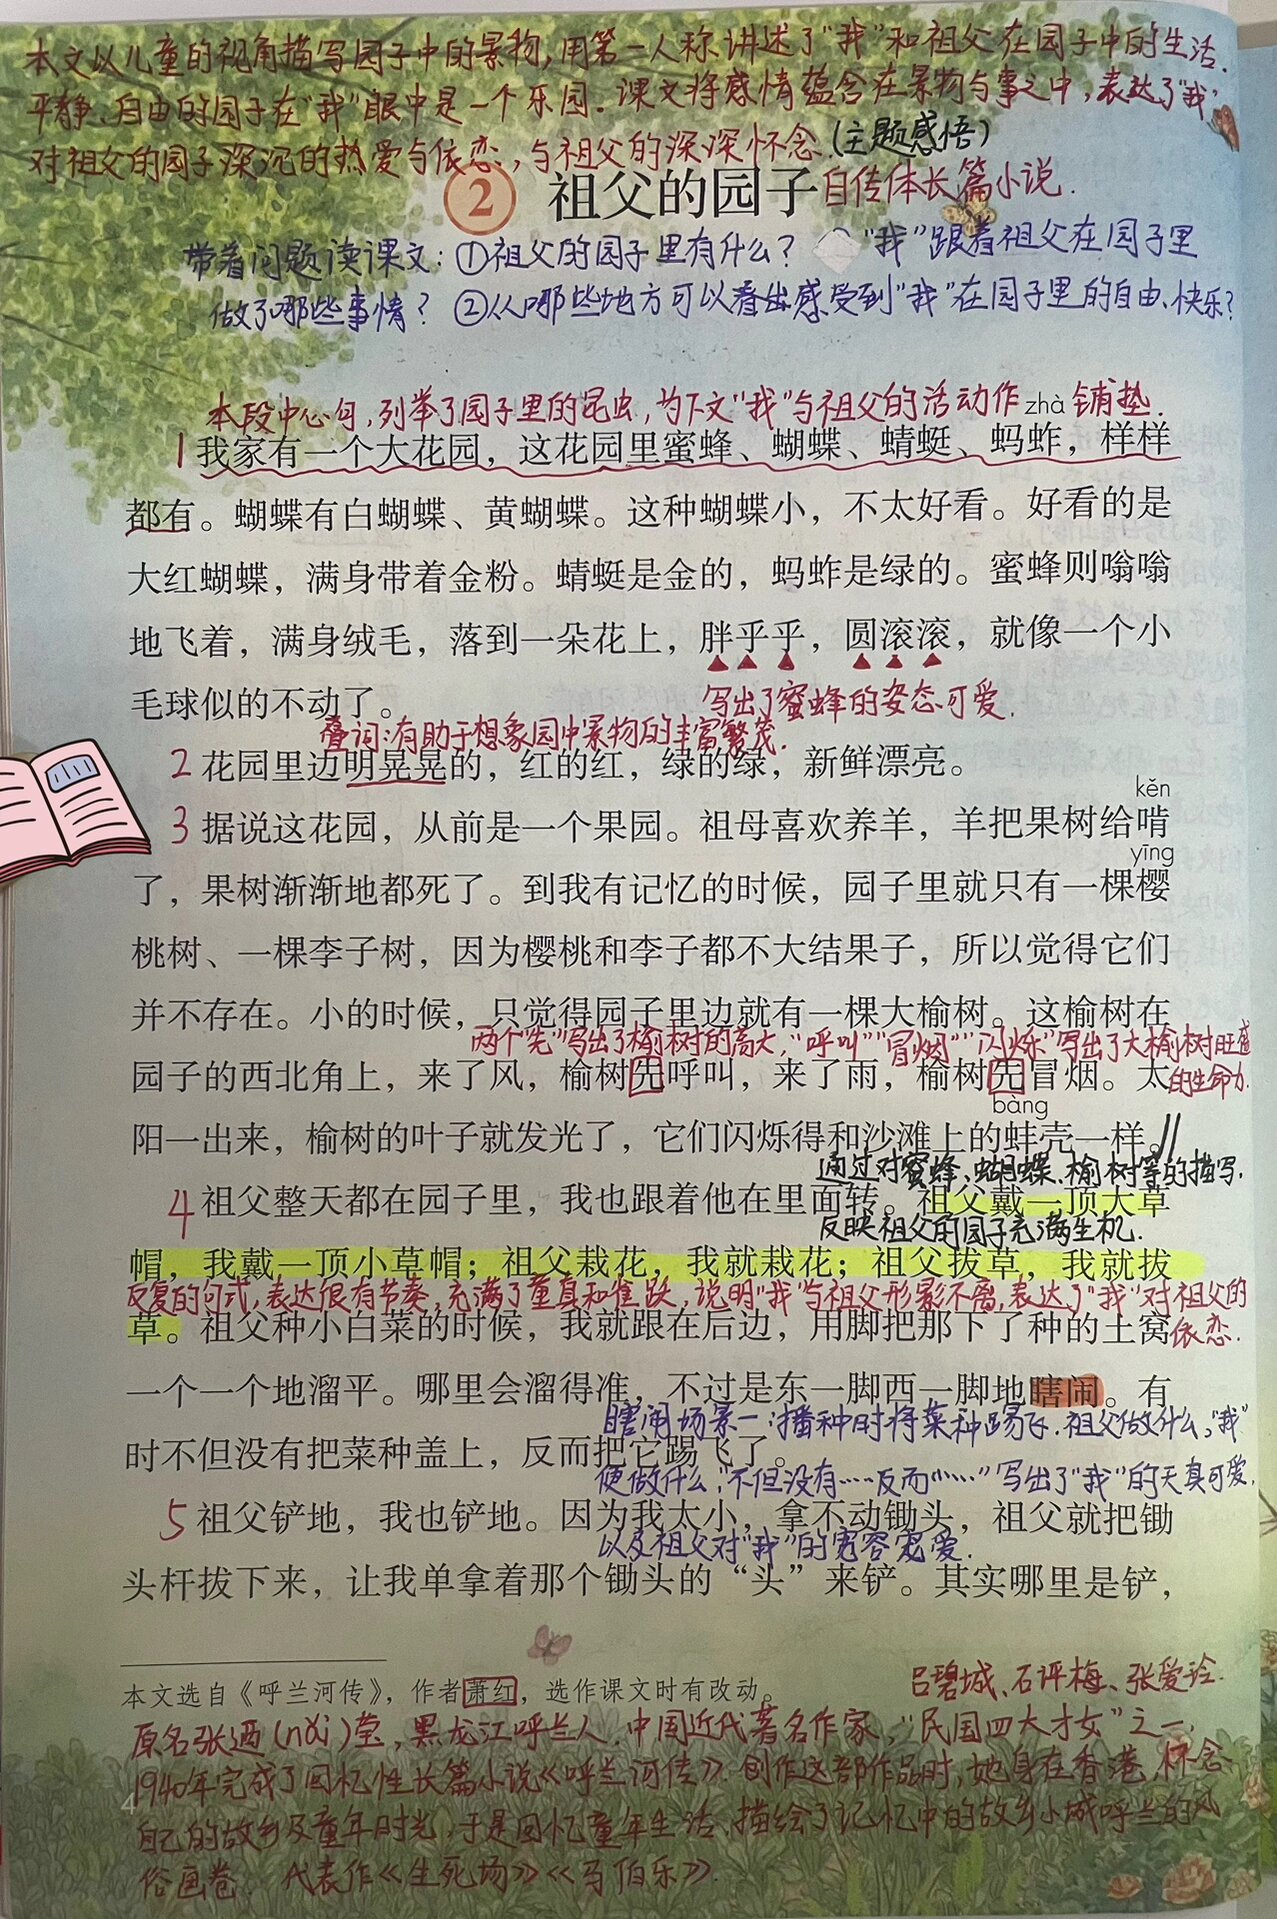 本文以儿童的视角描写园子中的景物,用第一人称讲述了"我"和祖父在园子中的生活.
平静、自由的园子在"我"眼中是一个乐园.课文将感情蕴含在景物与事之中,表达了"我"
对祖父的园子深沉的热爱与依恋,与祖父的深深怀念.(主题感悟)
2 祖父的园子 自传体长篇小说.
带着问题读课文:①祖父的园子里有什么?"我"跟着祖父在园子里
做了哪些事情?②从哪些地方可以看出感受到"我"在园子里的自由、快乐?
本段中心句,列举了园子里的昆虫,为下文"我"与祖父的活动作铺垫.
zhà
1 我家有一个大花园,这花园里蜜蜂、蝴蝶、蜻蜓、蚂蚱,样样
都有。蝴蝶有白蝴蝶、黄蝴蝶。这种蝴蝶小,不太好看。好看的是
大红蝴蝶,满身带着金粉。蜻蜓是金的,蚂蚱是绿的。蜜蜂则嗡嗡
地飞着,满身绒毛,落到一朵花上,胖乎乎,圆滚滚,就像一个小
毛球似的不动了。
写出了蜜蜂的姿态可爱.
叠词:有助于想象园中景物的丰富繁茂.
2 花园里边明晃晃的,红的红,绿的绿,新鲜漂亮。
kěn
3 据说这花园,从前是一个果园。祖母喜欢养羊,羊把果树给啃
yīng
了,果树渐渐地都死了。到我有记忆的时候,园子里就只有一棵樱
桃树、一棵李子树,因为樱桃和李子都不大结果子,所以觉得它们
并不存在。小的时候,只觉得园子里边就有一棵大榆树。这榆树在
两个"先"写出了榆树的高大,"呼叫""冒烟""闪烁"写出了大榆树旺盛
的生命力.
园子的西北角上,来了风,榆树先呼叫,来了雨,榆树先冒烟。太
bàng
阳一出来,榆树的叶子就发光了,它们闪烁得和沙滩上的蚌壳一样。//
通过对蜜蜂、蝴蝶、榆树等的描写,
4 祖父整天都在园子里,我也跟着他在里面转。祖父戴一顶大草
反映祖父的园子充满生机.
帽,我戴一顶小草帽;祖父栽花,我就栽花;祖父拔草,我就拔
反复的句式,表达很有节奏,充满了童真和雀跃,说明"我"与祖父形影不离,表达了"我"对祖父的
依恋.
草。祖父种小白菜的时候,我就跟在后边,用脚把那下了种的土窝
一个一个地溜平。哪里会溜得准,不过是东一脚西一脚地瞎闹。有
瞎闹场景一:播种时将菜种踢飞.祖父做什么,"我"
时不但没有把菜种盖上,反而把它踢飞了。
便做什么,"不但没有……反而……"写出了"我"的天真可爱,
5 祖父铲地,我也铲地。因为我太小,拿不动锄头,祖父就把锄
以及祖父对"我"的宽容宠爱.
头杆拔下来,让我单拿着那个锄头的“头”来铲。其实哪里是铲,
吕碧城、石评梅、张爱玲.
本文选自《呼兰河传》,作者萧红,选作课文时有改动。
原名张迺(nǎi)莹,黑龙江呼兰人.中国近代著名作家,"民国四大才女"之一,
1940年完成了回忆性长篇小说《呼兰河传》.创作这部作品时,她身在香港,怀念
4
自己的故乡及童年时光,于是回忆童年生活,描绘了记忆中的故乡小城呼兰的风
俗画卷.代表作《生死场》《马伯乐》.